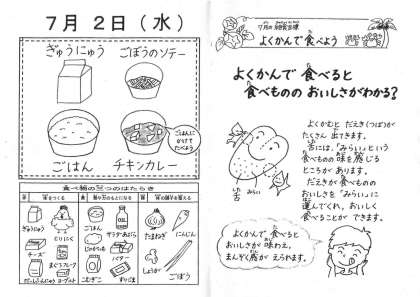 7月 2日（水）
ぎゅうにゅう
ごぼうのソテー
ごはんにかけてたべよう
ごはん
チキンカレー
食べ物の三つのはたらき
ぎゅうにゅう
とりにく
チーズ
まぐろフレーク
だっしふんにゅう
ヨーグルト
ごはん
サラダあぶら
じゃがいも
バター
こむぎこ
さとう
たまねぎ
にんじん
しょうが
ごぼう
7月の給食目標
よくかんで食べよう
よくかんで 食べると
食べものの おいしさがわかる？
よくかむと だえき（つば）が
たくさん 出てきます。
舌には、「みらい」という
食べものの 味を 感じる
ところが あります。
だえきが 食べものの
おいしさを 「みらい」に
運んでくれ、おいしく
食べることが できます。
舌
みらい
よくかんで 食べると
おいしさが 味わえ、
まんぞく感が えられます。